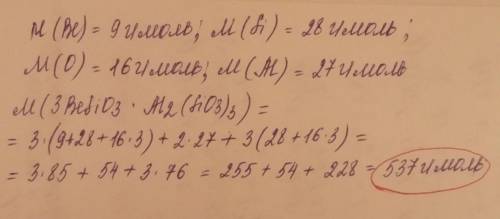 M(Be) = 9 г/моль; M(Si) = 28 г/моль;
M(O) = 16 г/моль; M(Al) = 27 г/моль
M(3BeSiO3 · Al2(SiO3)3) =
= 3·(9+28+16·3) + 2·27 + 3(28+16·3) =
= 3·85 + 54 + 3·76 = 255 + 54 + 228 = 537 г/моль